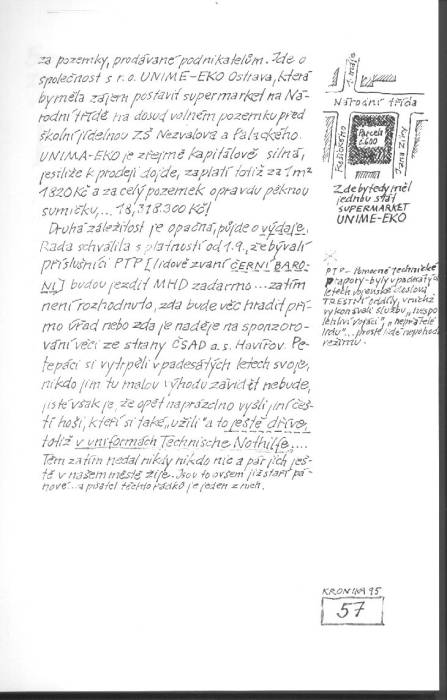 za pozemky, prodávané podnikatelům. Jde o
společnost s r.o. UNIME-EKO Ostrava, která
by měla zájem postavit supermarket na Ná-
rodní třídě na dosud volném pozemku před
školní jídelnou ZŠ Nezvalova a Palackého.
UNIMA-EKO je zřejmě kapitálově silná,
jestliže k prodeji dojde, zaplatí totiž za 1 m²
1820 Kč a za celý pozemek opravdu pěknou
sumičku,... 18,318.300 Kč!
Druhá záležitost je opačná, půjde o výdaje.
Rada schválila s platností od 1.9., že bývalí
příslušníci PTP [lidově zvaní ČERNÍ BARO-
NI] budou jezdit MHD zadarmo...zatím
není rozhodnuto, zda bude věc hradit pří-
mo úřad nebo zda je naděje na sponzoro-
vání věci ze strany ČSAD a.s. Havířov. Pe-
tepáci si vytrpěli v padesátých letech svoje,
nikdo jim tu malou výhodu závidět nebude,
jisté však je, že opět naprázdno vyšli jiní češ-
tí hoši, kteří si také "užili" a to ještě dříve,
totiž v uniformách Technische Nothilfe....
Těm zatím nedal nikdy nikdo nic a pár jich ješ-
tě v našem městě žije. Jsou to ovšem již staří pá-
nové...a pisatel těchto řádků je jeden z nich.
1. máje
Národní třída
Parcela
2600
Palackého
Jana Ziny
Zde by tedy měl
jednou stát
SUPERMARKET
UNIME-EKO
PTP - Pomocné technické
prapory - byly v padesátých
letech vojenské
TRESTNÍ oddíly, v nichž
vykonávali službu "nespo-
lehliví vojáci", "nepřátelé
lidu"...prostě lidé nepohodl
režimu.
KRONIKA 95
57